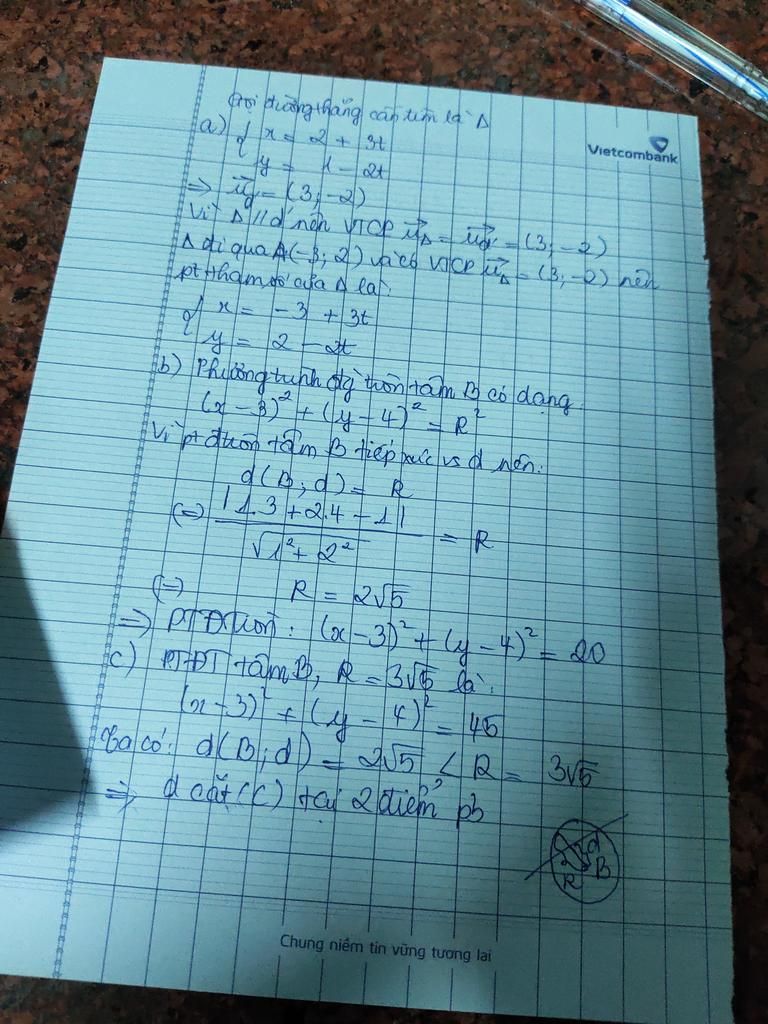 Gọi đường thẳng cần tìm là Δ
Vietcombank
a) { x = 2 + 3t
y = 1 - 2t
=> u_d' = (3; -2)
Vì Δ // d' nên VTCP u_Δ = u_d' = (3; -2)
Δ đi qua A(-3; 2) và có VTCP u_Δ = (3; -2) nên
pt tham số của Δ là:
{ x = -3 + 3t
y = 2 - 2t
b) Phương trình đg tròn tâm B có dạng
(x - 3)² + (y - 4)² = R²
Vì pt đ tròn tâm B tiếp xúc vs d nên:
d(B; d) = R
(=) |1.3 + 2.4 - 1| / √1² + 2² = R
(=) R = 2√5
=> PTĐ tròn: (x - 3)² + (y - 4)² = 20
c) PTĐT tâm B, R = 3√5 là:
(x - 3)² + (y - 4)² = 45
Ta có: d(B; d) = 2√5 < R = 3√5
=> d cắt (C) tại 2 điểm pb
d
R B
Chung niềm tin vững tương lai